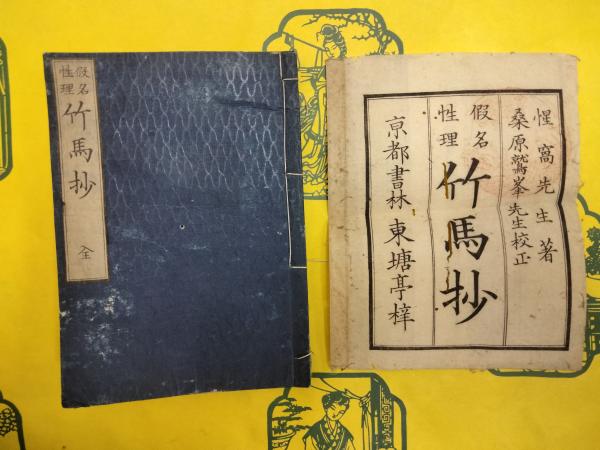 假名
性理
竹馬抄
全
惺窩先生著
桑原鷲峯先生校正
假名
性理
竹馬抄
京都書林東塘亭梓